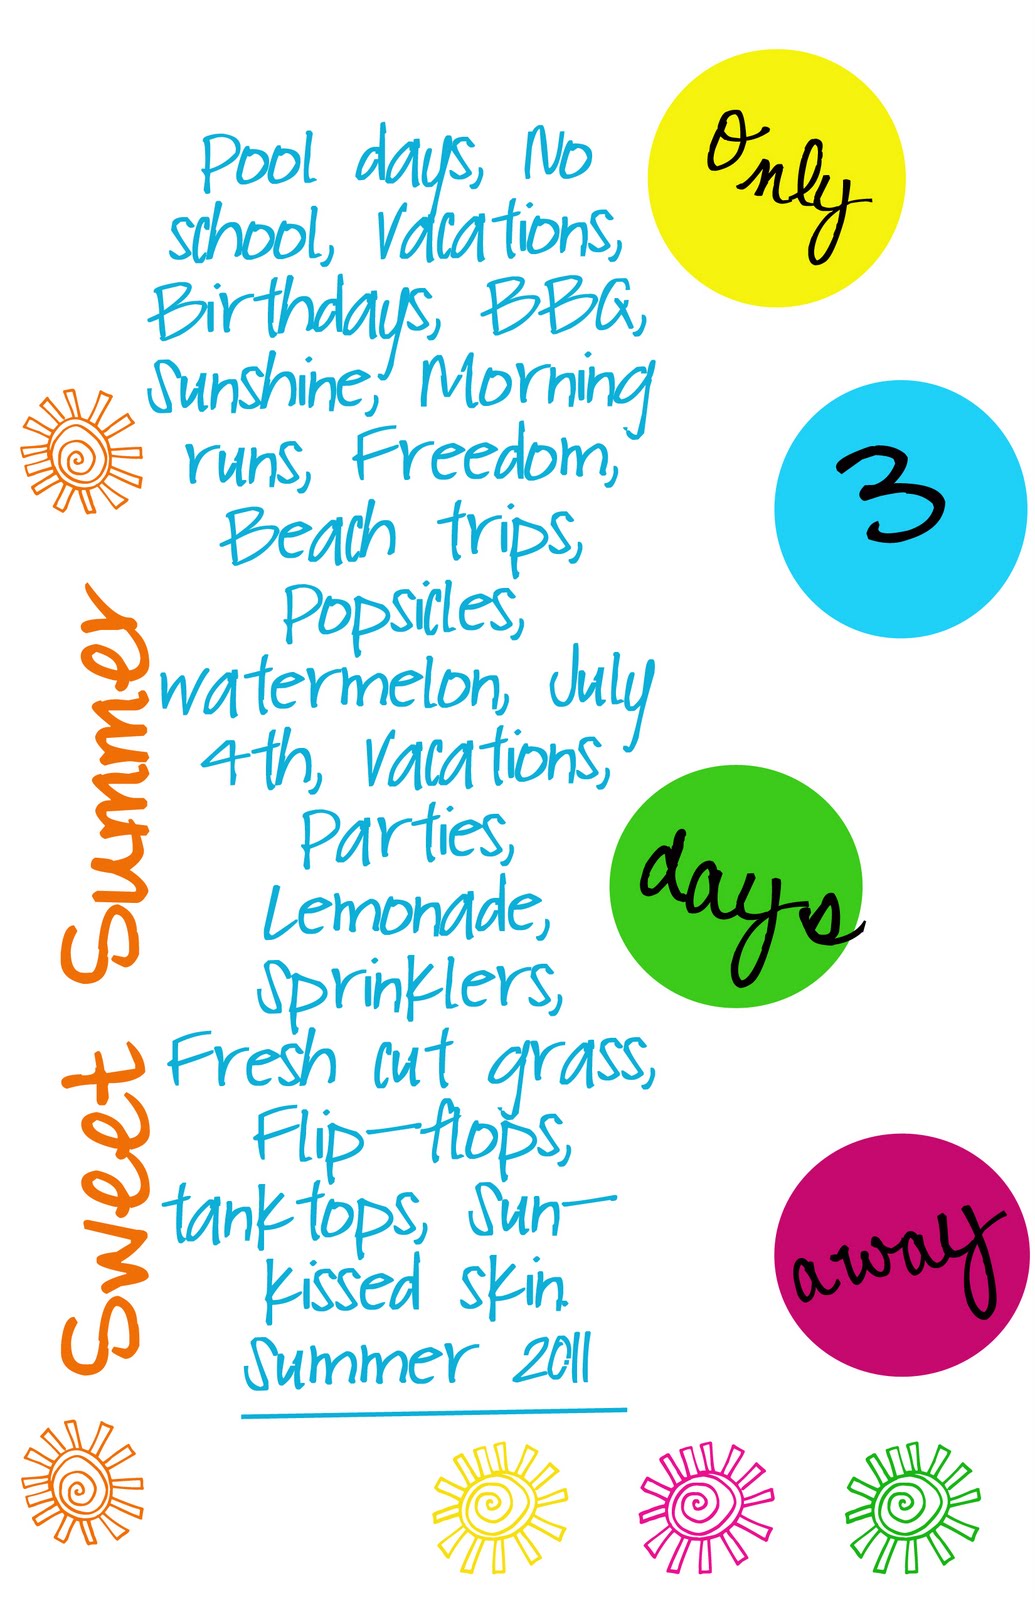 Pool days, No
school, Vacations,
Birthdays, BBQ,
Sunshine, Morning
runs, Freedom,
Beach trips,
Popsicles,
watermelon, July
4th, Vacations,
Parties,
Lemonade,
Sprinklers,
Fresh cut grass,
Flip-flops,
tanktops, Sun-
kissed skin.
Summer 2011
Sweet Summer
Only
3
days
away